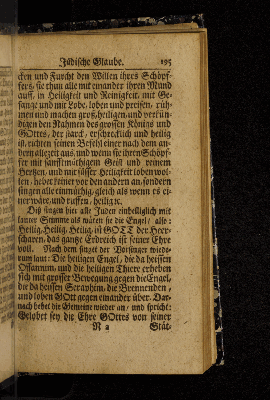 Jüdische Glaube. 195
cken und Furcht den Willen ihres Schöpf-
fers, sie thun alle mit einander ihren Mund
auff, in Heiligkeit und Reinigkeit, mit Ge-
sange und mit Lobe, loben und preisen, rüh-
men und machen groß, heiligen, und verkün-
digen den Nahmen des grossen Königs und
GOttes, der starck, erschrecklich und heilig
ist, richten seinen Befehl einer nach dem an-
dern allezeit aus, und wenn sie ihren Schöpf-
fer mit sanfftmüthigem Geist und reinem
Hertzen, und mit süsser Heiligkeit loben wol-
len, hebet keiner vor den andern an, sondern
singen alle einmüthig, gleich als wenn es ei-
ner wäre, und ruffen, heilig ꝛc.
Diß singen hier alle Juden einhelliglich mit
lauter Stimme als wären sie die Engel / also:
Heilig, Heilig, Heilig, ist GOTT der Heer-
scharen, das gantze Erdreich ist seiner Ehre
voll. Nach dem singet der Vorsinger wiede-
rum laut: Die heiligen Engel, die da heissen
Offannim, und die heiligen Thiere erheben
sich mit grosser Bewegung gegen die Engel,
die da heissen Seraphim, die Brennenden,
und loben GOtt gegen einander über. Dar-
nach hebet die Gemeine wieder an, und spricht:
Gelobet sey die Ehre GOttes von seiner
N 2 Stät-